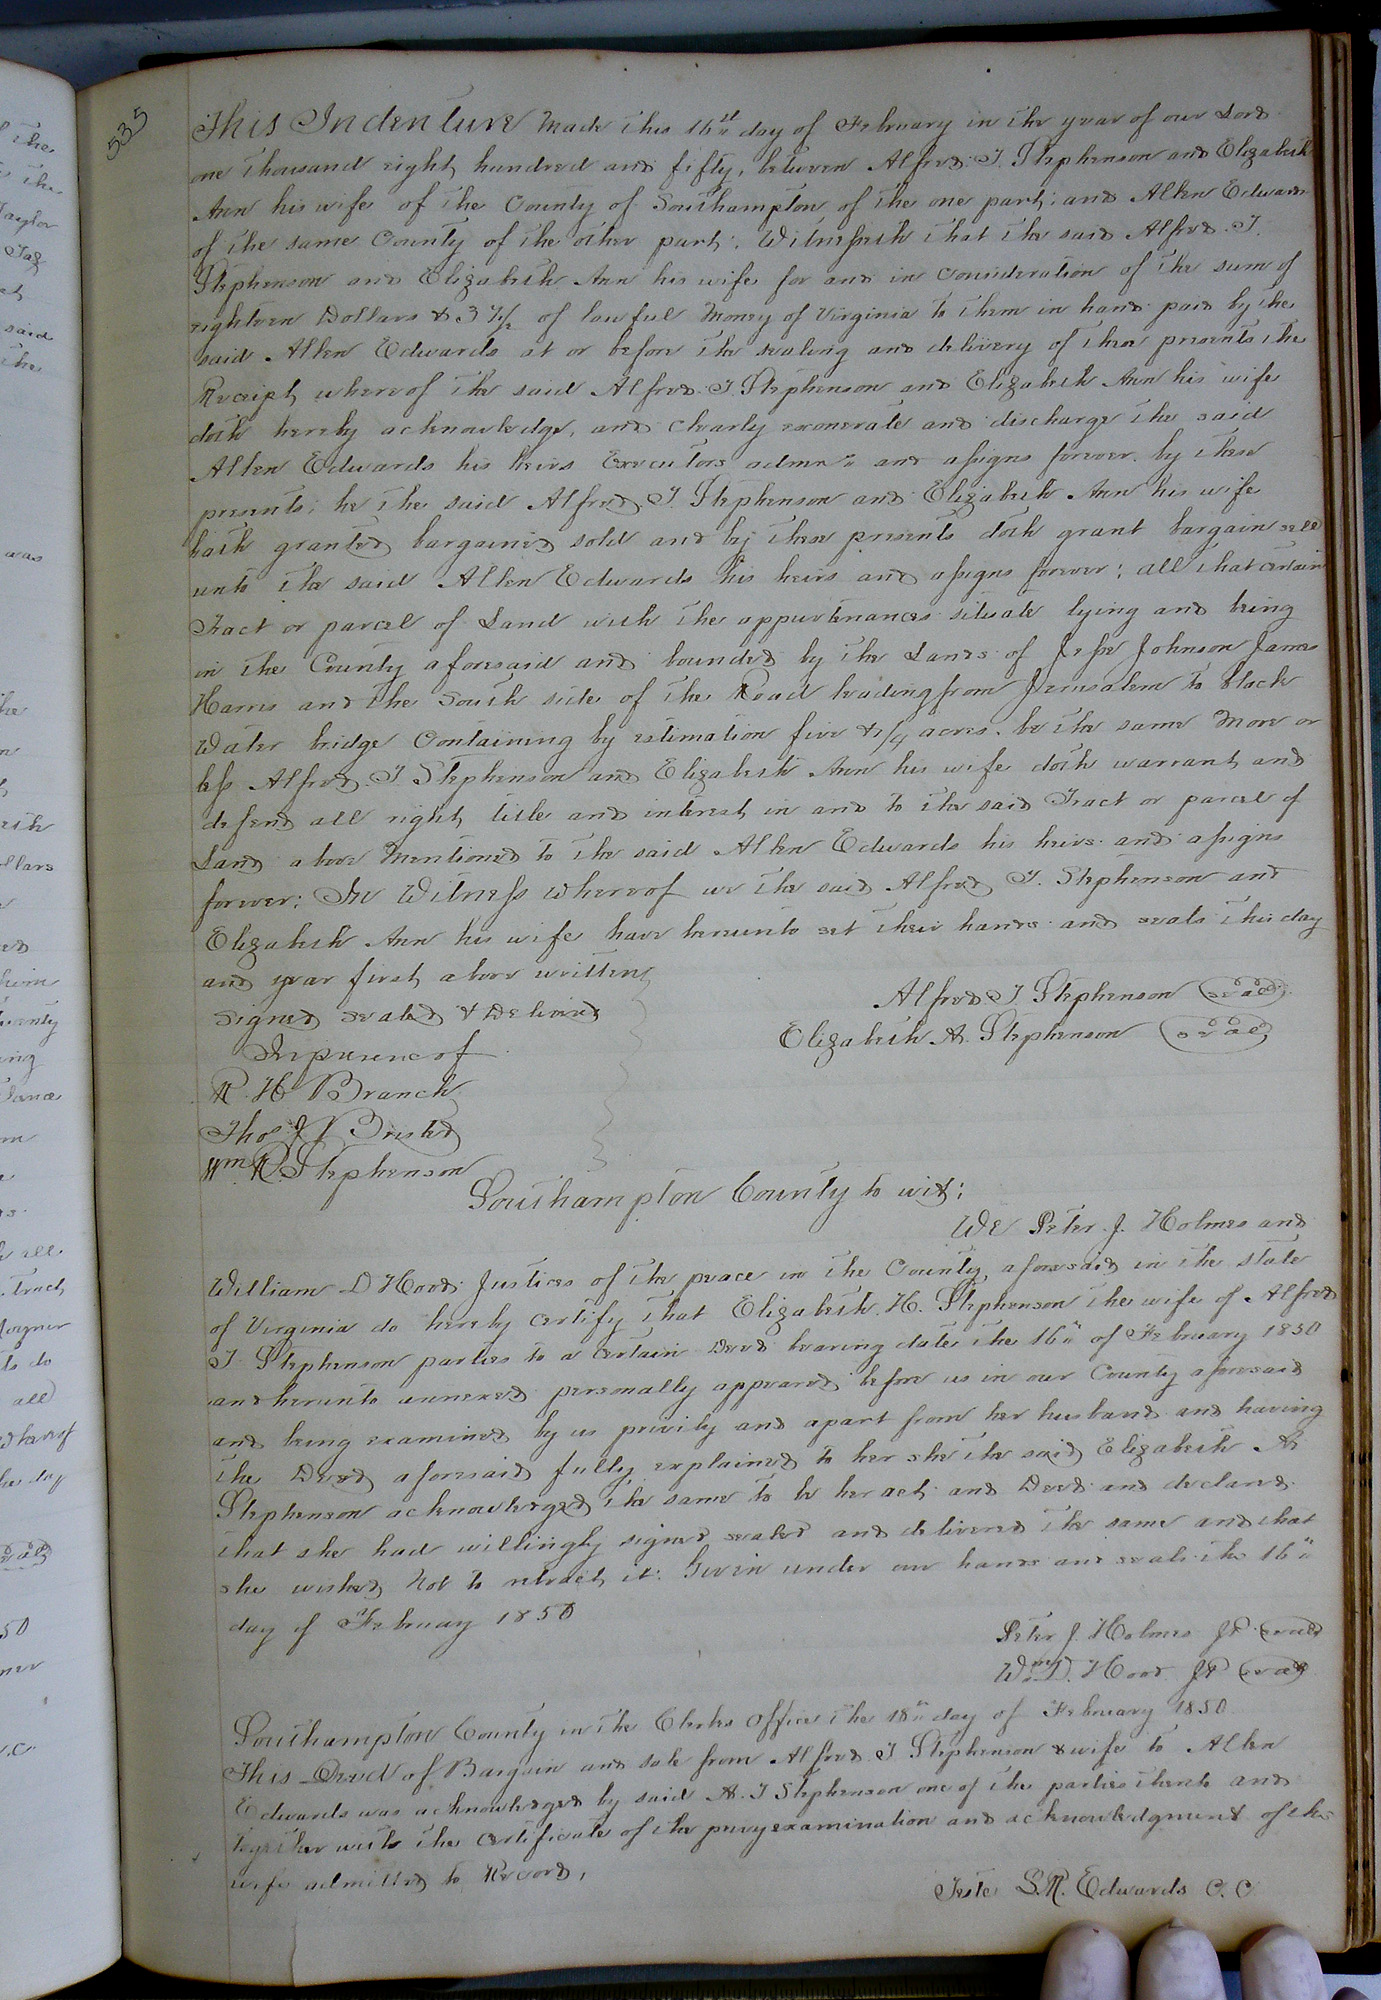 535
This Indenture Made this 16th day of February in the year of our Lord
one thousand eight hundred and fifty, between Alfred. J. Stephenson and Elizabeth
Ann his wife of the County of Southampton of the one part; and Allen Edwards
of the same County of the other part: Witnesseth that the said Alfred. J.
Stephenson and Elizabeth Ann his wife for and in consideration of the sum of
eighteen Dollars & 37 1/2 of lawful Money of Virginia to them in hand paid by the
said Allen Edwards at or before the sealing and delivery of these presents the
Receipt whereof the said Alfred. J. Stephenson and Elizabeth Ann his wife
doth hereby acknowledge, and clearly exonerate and discharge the said
Allen Edwards his heirs Executors admrs and assigns forever by these
presents; he the said Alfred. J. Stephenson and Elizabeth Ann his wife
hath granted bargained sold and by these presents doth grant bargain sell
unto the said Allen Edwards his heirs and assigns forever; all that certain
Tract or parcel of Land with the appurtenances situate lying and being
in the County aforesaid and bounded by the Lands of Jesse Johnson James
Harris and the South side of the Road leading from Jerusalem to black
Water bridge Containing by estimation five & 1/4 acres. be the same More or
less Alfred. J. Stephenson and Elizabeth Ann his wife doth warrant and
defend all right title and interest in and to the said Tract or parcel of
Land above Mentioned to the said Allen Edwards his heirs and assigns
forever: In Witness whereof we the said Alfred J. Stephenson and
Elizabeth Ann his wife have hereunto set their hands and seals this day
and year first above written
Signed sealed & Delivered
Alfred J. Stephenson seal
In presence of
Elizabeth A. Stephenson seal
R. H Branch
Thos J
Wm R. Stephenson
Southampton County to wit;
We Peter. J. Holmes and
William D Hood Justices of the peace in the County aforesaid in the State
of Virginia do hereby certify that Elizabeth. H. Stephenson the wife of Alfred
J Stephenson parties to a certain Deed bearing date the 16th of February 1850
and herunto annexed personally appeared before us in our County aforesaid
and being examined by us privily and apart from her husband and having
the Deed aforesaid fully explained to her she the said Elizabeth A.
Stephenson acknowledged the same to be her act and Deed and declared
that she had willingly signed sealed and delivered the same and that
she wished Not to retract it. Given under our hands and seals the 16th
day of February 1850
Peter J. Holmes JP seal
Wm D. Hood JP seal
Southampton County in the Clerks Office the 18th day of February 1850
This Deed of Bargain and sale from Alfred J Stephenson & wife to Allen
Edwards was acknowledged by said A. J Stephenson one of the parties thereto and
together with the certificate of the privy examination and acknowledgment of the
wife admitted to Record,
Teste S. R. Edwards C. C